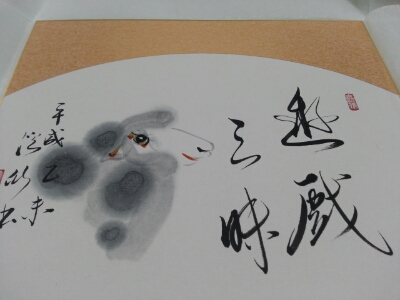 遊戯
三昧
平成乙未